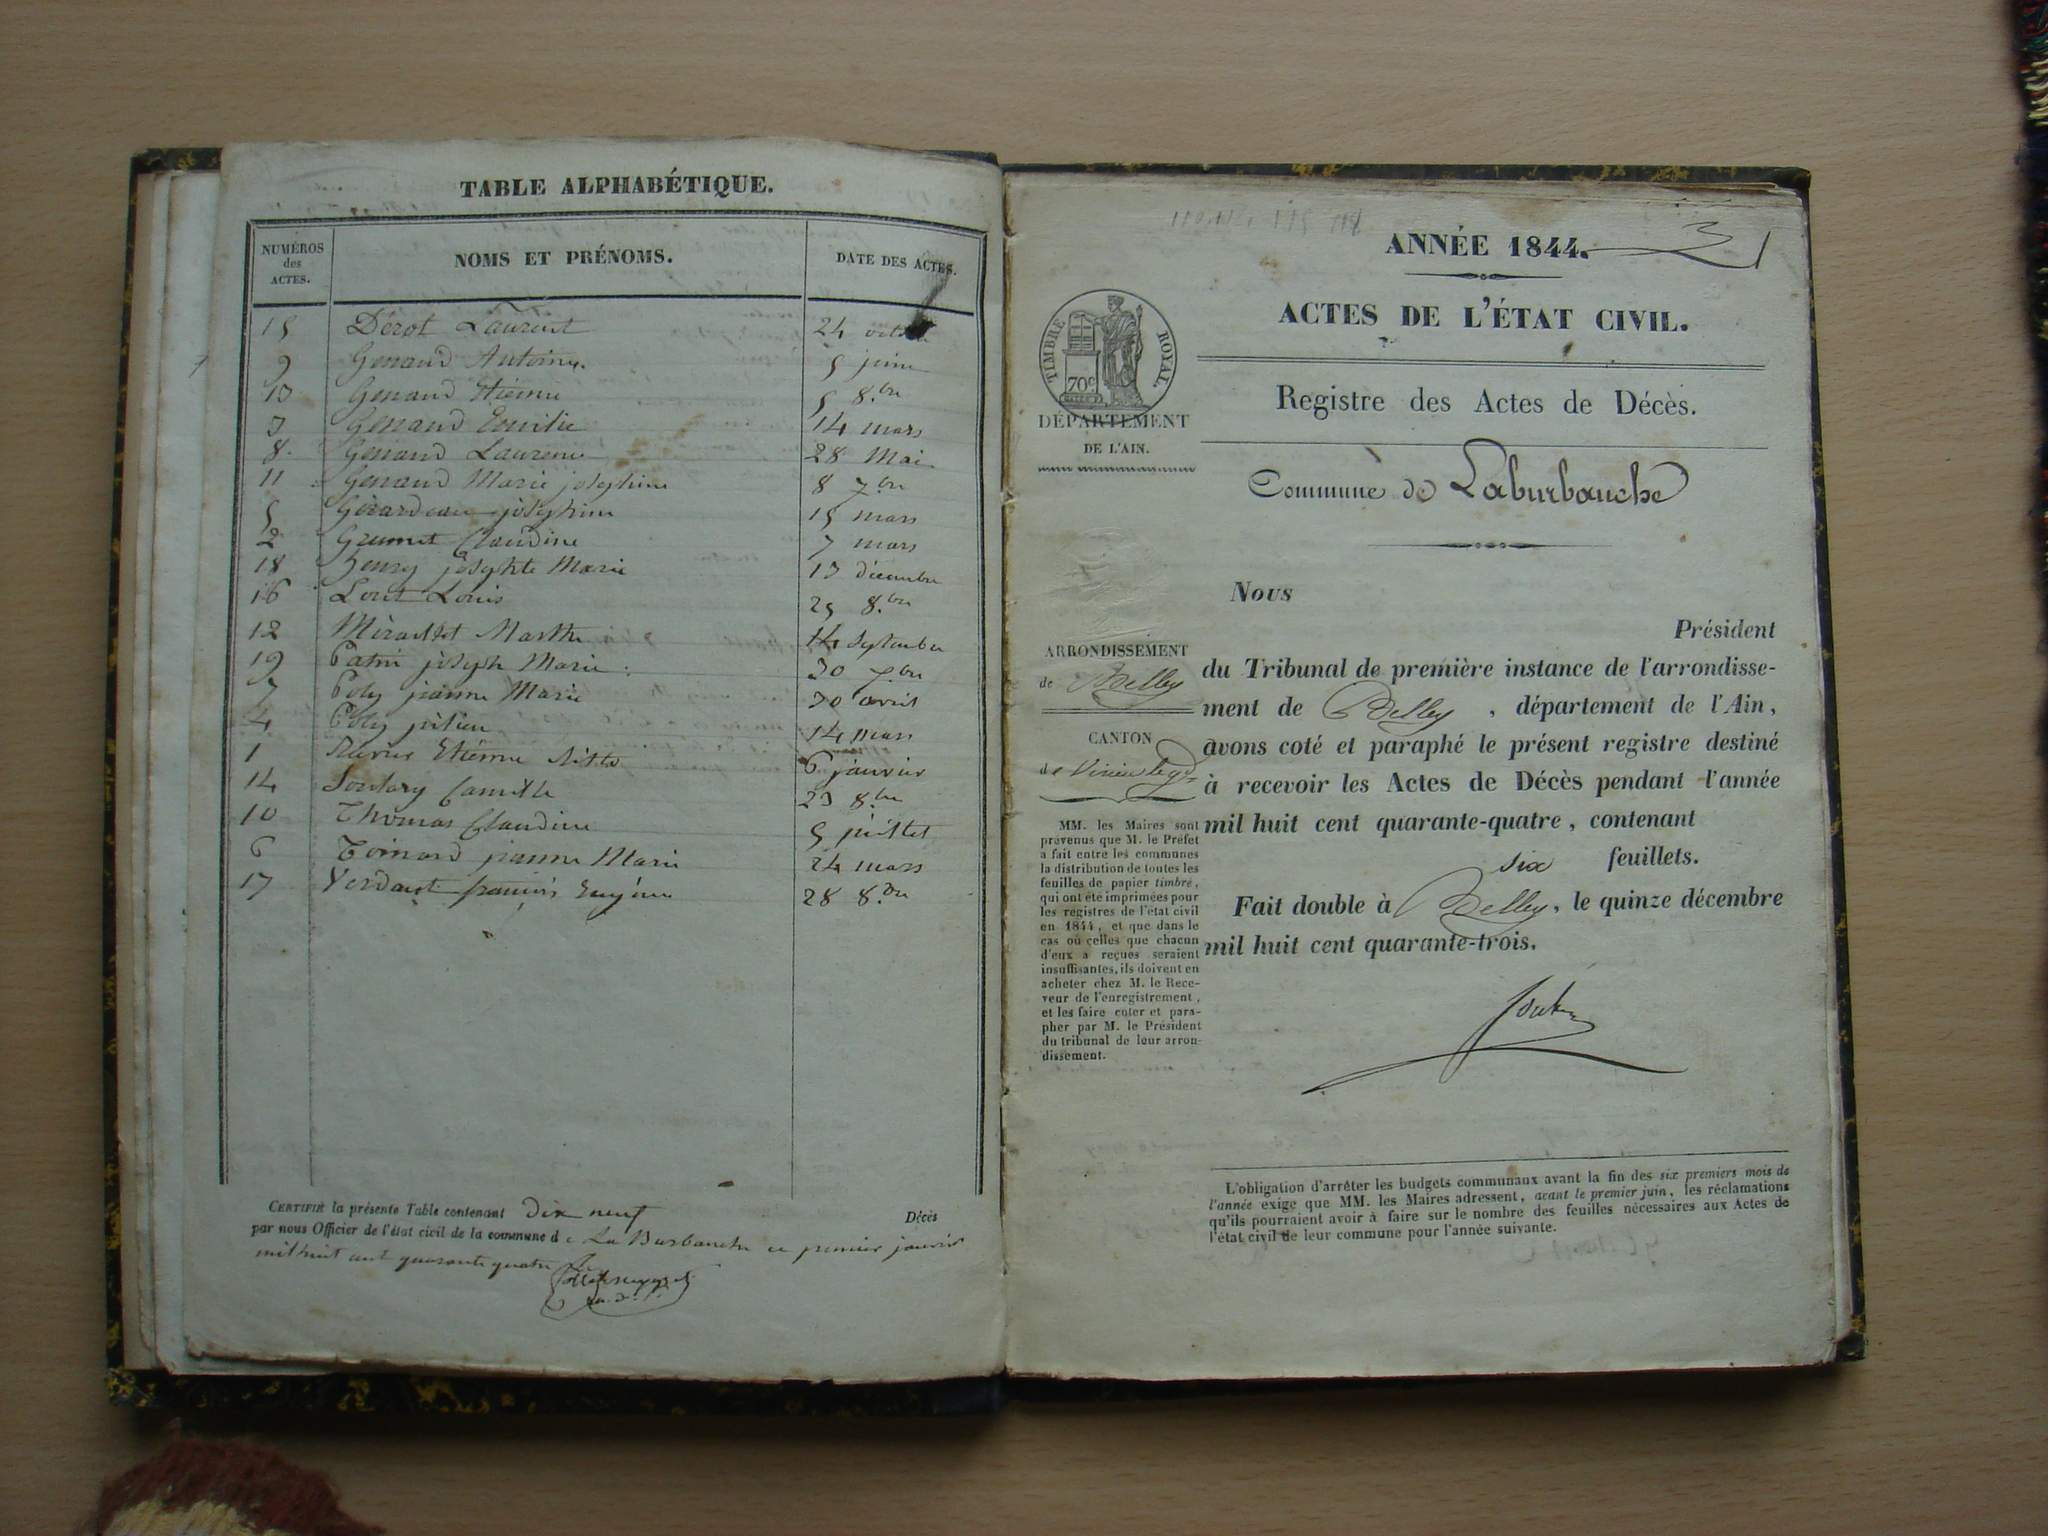 TABLE ALPHABÉTIQUE.
NUMÉROS des ACTES. NOMS ET PRÉNOMS. DATE DES ACTES.
15 Dérot Laurent 24
9 Genaud Antoine. 5 juin
13 Genaud Etienne 5 8.bre
3 Genaud Emilie 14 mars
8 Genaud Laurence 28 Mai
11 Genaud Marie joséphine 8 7.bre
5 joséphine 15 mars
2 Grumet Claudine 7 mars
18 henry josephte Marie 13 décembre
16 Louis 25 8.bre
12 Marthe 14 septembre
19 joseph Marie 30
7 Poly jeanne Marie 30 avril
4 Poly 14 mars
1 Etienne 6 janvier
14 Camille 23 8.bre
10 Thomas Claudine 5 juillet
6 Toinard jeanne Marie 24 mars
17 françois Eugène 28 8.bre
CERTIFIÉ la présente Table contenant Dix neuf Décès
par nous Officier de l'état civil de la commune de La Burbanche ce premier janvier
mil huit cent quarante quatre
ANNÉE 1844.
ACTES DE L'ÉTAT CIVIL.
TIMBRE ROYAL.
70c
Registre des Actes de Décès.
DÉPARTEMENT
DE L'AIN.
Commune de Laburbanche
Nous
Président
ARRONDISSEMENT
de Belley
du Tribunal de première instance de l'arrondisse-
ment de Belley, département de l'Ain,
CANTON
de Virieu le gd
avons coté et paraphé le présent registre destiné
à recevoir les Actes de Décès pendant l'année
mil huit cent quarante-quatre, contenant
six feuillets.
Fait double à Belley, le quinze décembre
mil huit cent quarante-trois.
MM. les Maires sont
prévenus que M. le Préfet
a fait entre les communes
la distribution de toutes les
feuilles de papier timbré,
qui ont été imprimées pour
les registres de l'état civil
en 1844, et que dans le
cas où celles que chacun
d'eux a reçues seraient
insuffisantes, ils doivent en
acheter chez M. le Rece-
veur de l'enregistrement,
et les faire coter et para-
pher par M. le Président
du tribunal de leur arron-
dissement.
L'obligation d'arrêter les budgets communaux avant la fin des six premiers mois de
l'année exige que MM. les Maires adressent, avant le premier juin, les réclamations
qu'ils pourraient avoir à faire sur le nombre des feuilles nécessaires aux Actes de
l'état civil de leur commune pour l'année suivante.